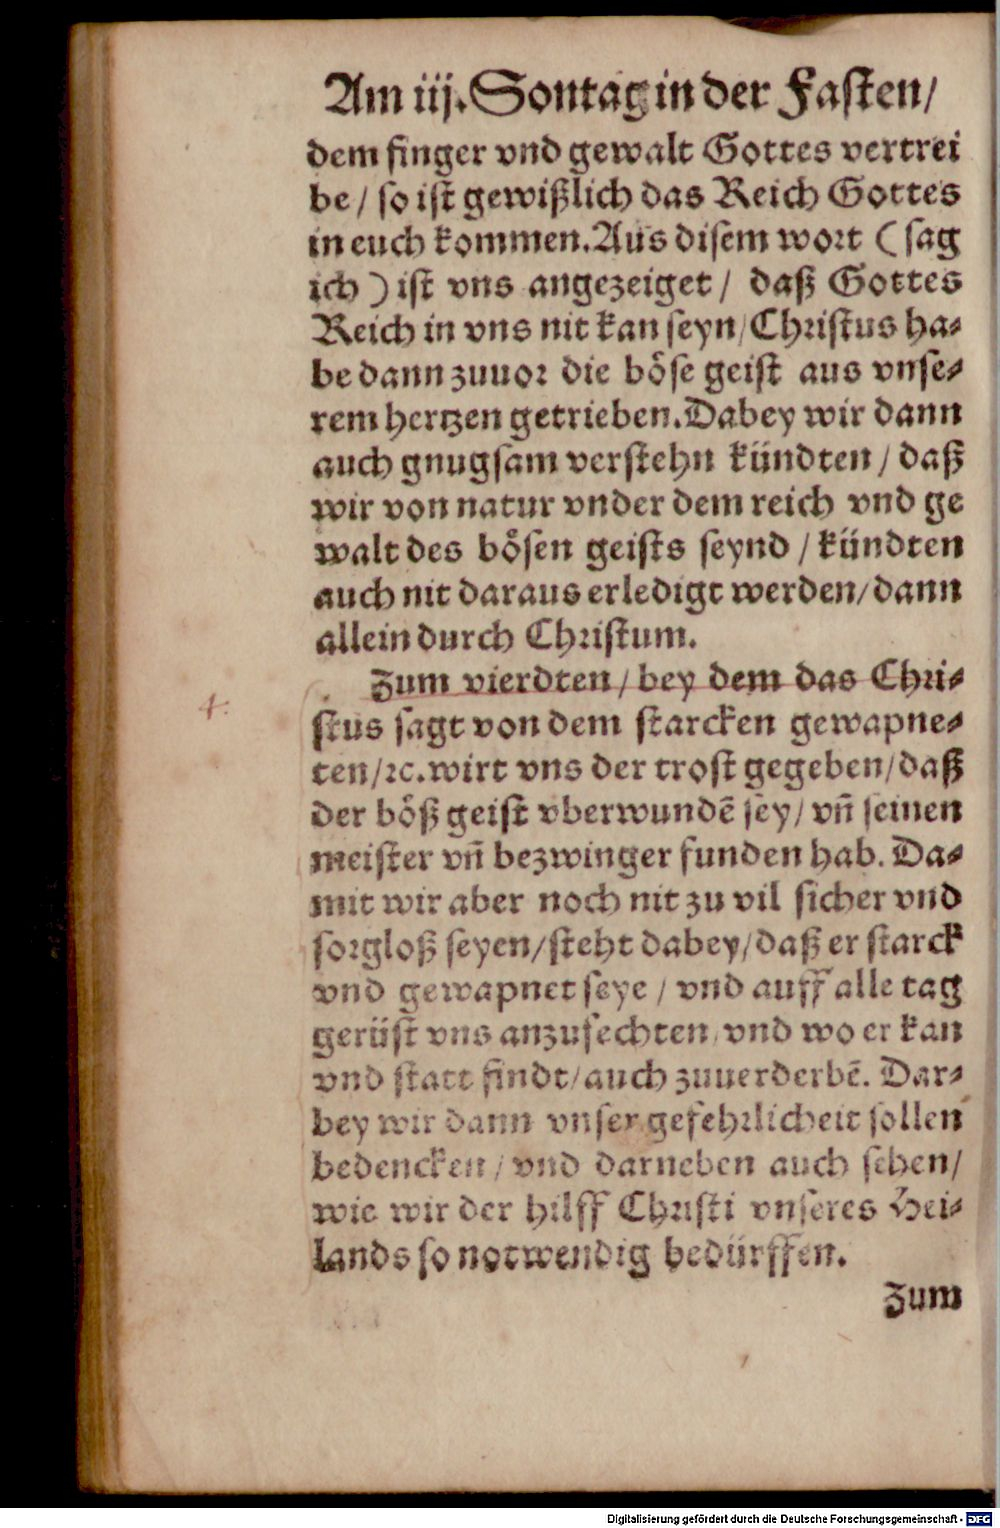 Am iij. Sontag in der Fasten/
dem finger vnd gewalt Gottes vertrei
be / so ist gewißlich das Reich Gottes
in euch kommen. Aus disem wort ( sag
ich ) ist vns angezeiget / daß Gottes
Reich in vns nit kan seyn/ Christus ha-
be dann zuuor die böse geist aus vnse-
rem hertzen getrieben. Dabey wir dann
auch gnugsam verstehn kündten / daß
wir von natur vnder dem reich vnd ge
walt des bösen geists seynd / kündten
auch nit daraus erledigt werden/ dann
allein durch Christum.
Zum vierdten / bey dem das Chri-
4.
stus sagt von dem starcken gewapne-
ten/ ꝛc. wirt vns der trost gegeben/ daß
der böß geist vberwundē sey/ vñ seinen
meister vñ bezwinger funden hab. Da-
mit wir aber noch nit zu vil sicher vnd
sorgloß seyen/ steht dabey/ daß er starck
vnd gewapnet seye / vnd auff alle tag
gerüst vns anzufechten/ vnd wo er kan
vnd statt findt/ auch zuuerderbē. Dar-
bey wir dann vnser gefehrlicheit sollen
bedencken / vnd darneben auch sehen/
wie wir der hilff Christi vnseres Hei-
lands so notwendig bedürffen.
Zum
Digitalisierung gefördert durch die Deutsche Forschungsgemeinschaft - DFG